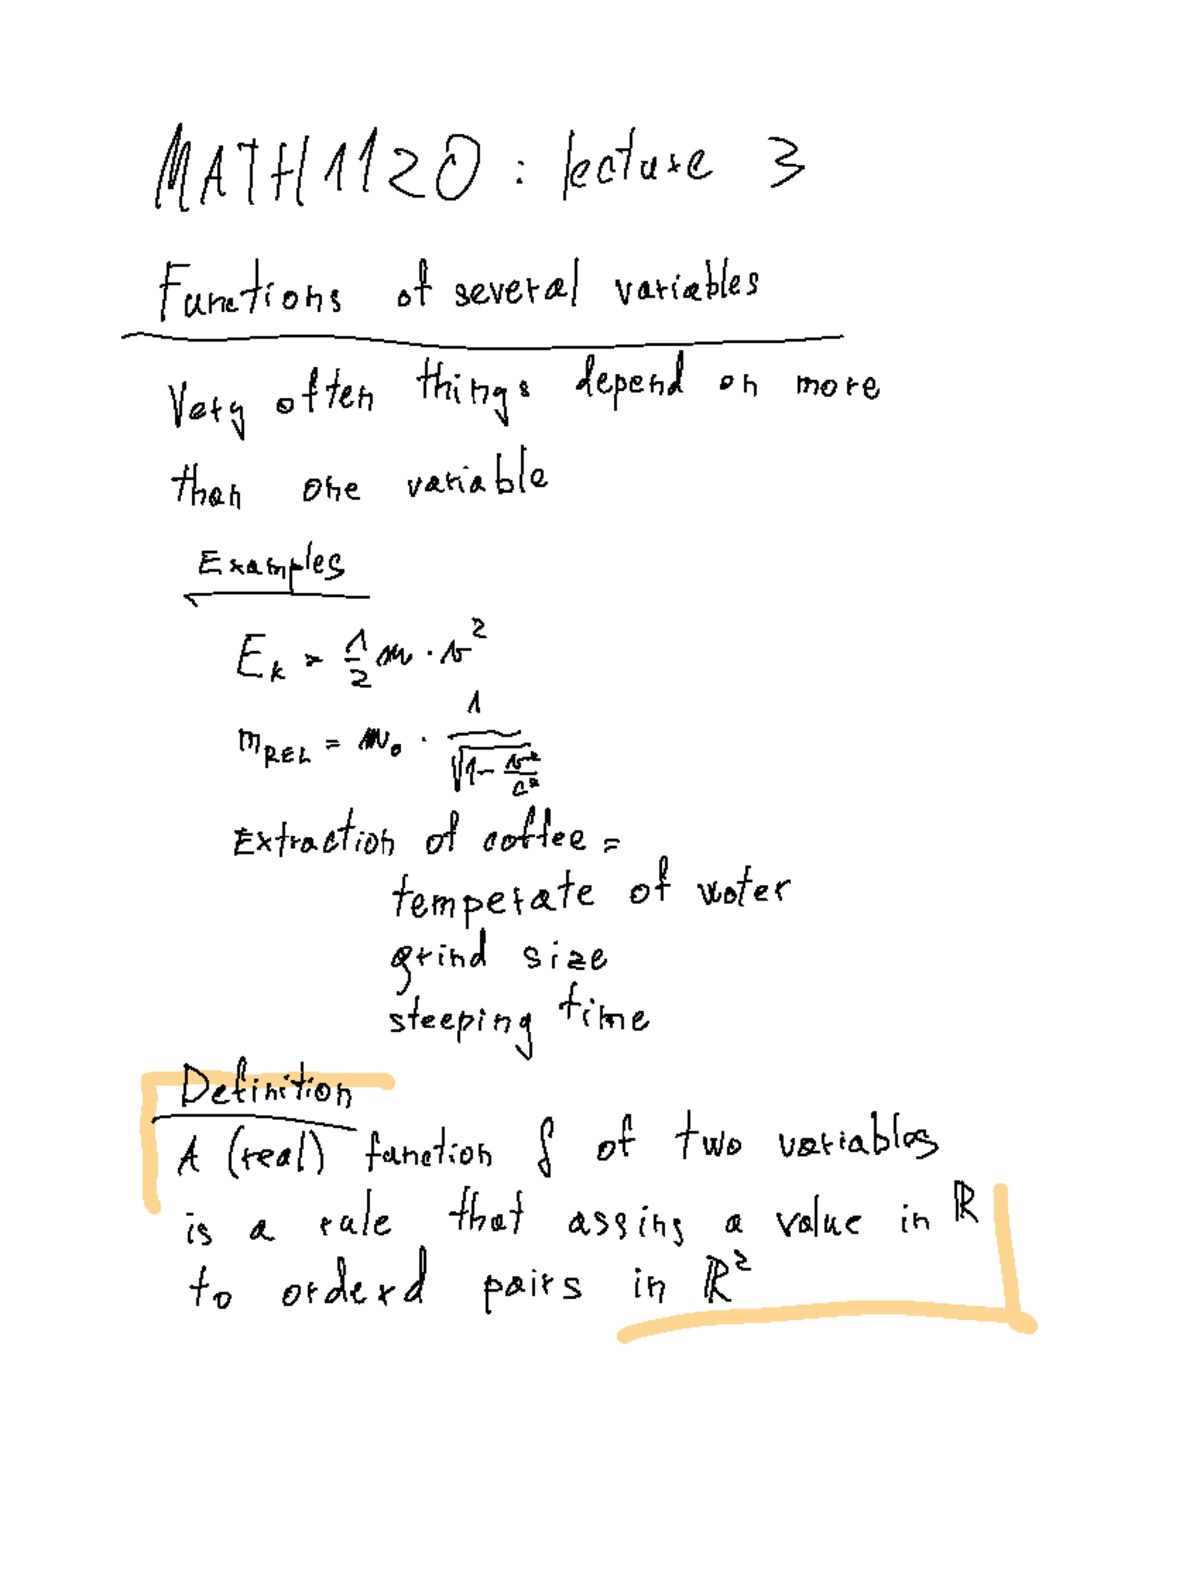 MATH1120 : lecture 3
Functions of several variables
Very often things depend on more
than one variable
Examples
E_k = 1/2 m · v^2
m_REL = m_0 · 1/√(1 - v^2/c^2)
Extraction of coffee =
temperate of water
grind size
steeping time
Definition
A (real) function f of two variables
is a rule that assing a value in ℝ
to orderd pairs in ℝ^2